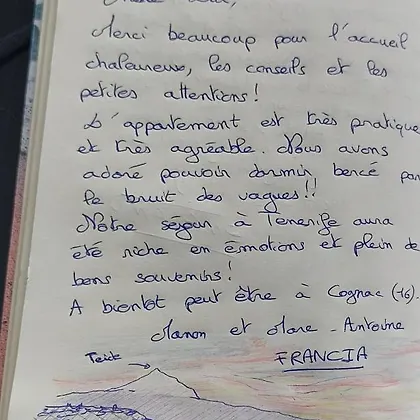 Merci beaucoup pour l'accueil
chaleureux, les conseils et les
petites attentions!
L'appartement est très pratique
et très agréable. Nous avons
adoré pouvoir dormir bercé par
le bruit des vagues!!
Notre séjour à Tenerife aura
été riche en émotions et plein de
bons souvenirs!
A bientôt peut être à Cognac (16).
Manon et Marc-Antoine
FRANCIA
Teide